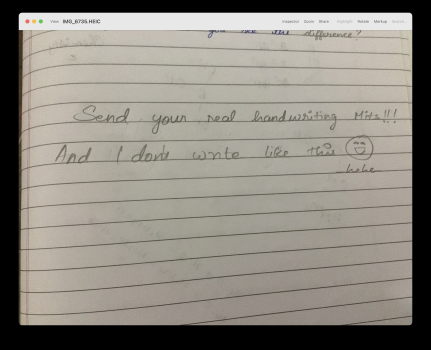 View IMG_6735.HEIC Inspector Zoom Share Highlight Rotate Markup Search
you see the difference?
Send your real handwriting Mits!!!
And I don't write like this
hehe